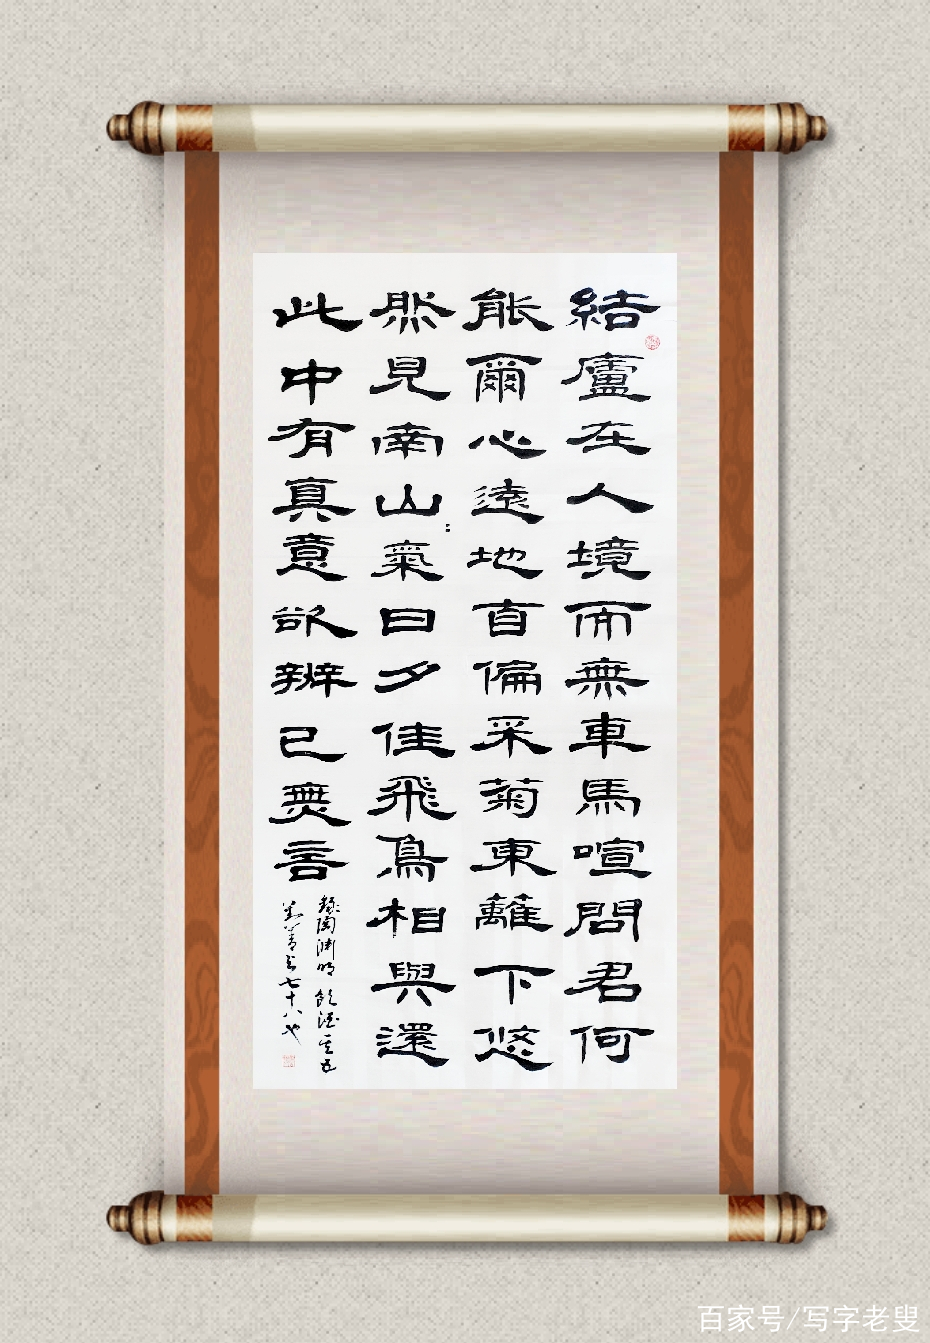 結廬在人境而無車馬喧問君何
能爾心遠地自偏采菊東籬下悠
然見南山〻氣日夕佳飛鳥相與還
此中有真意欲辨已無言
錄陶淵明飲酒其五
七十八
百家号/写字老叟